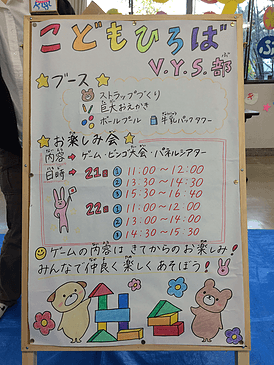 こどもひろば
V.Y.S.部
ブース
ストラップづくり
巨大おえかき
ボールプール 牛乳パックタワー
お楽しみ会
内容→ゲーム・ビンゴ大会・パネルシアター
日時→21日 ① 11:00～12:00
② 13:30～14:30
③ 15:40～16:40
22日 ① 11:00～12:00
② 13:00～14:00
③ 14:30～15:30
ゲームの内容はきてからのお楽しみ!
みんなで仲良く楽しくあそぼう!